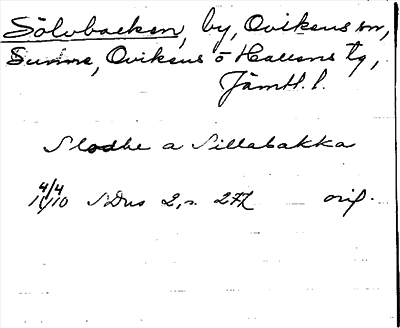 Sölvbacken, by, Ovikens sn,
Sunne, Ovikens o Hallens tg,
Jämtl. l.
Slodhe a Sillabakka
4/4
1410 SDns 2, s. 272 orig.